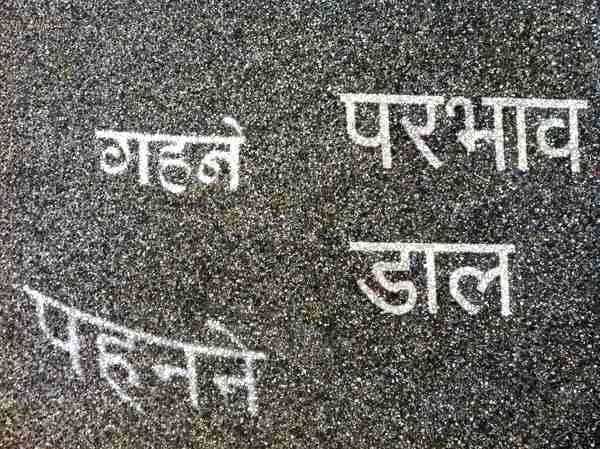 गहने
परभाव
डाल
पहनने